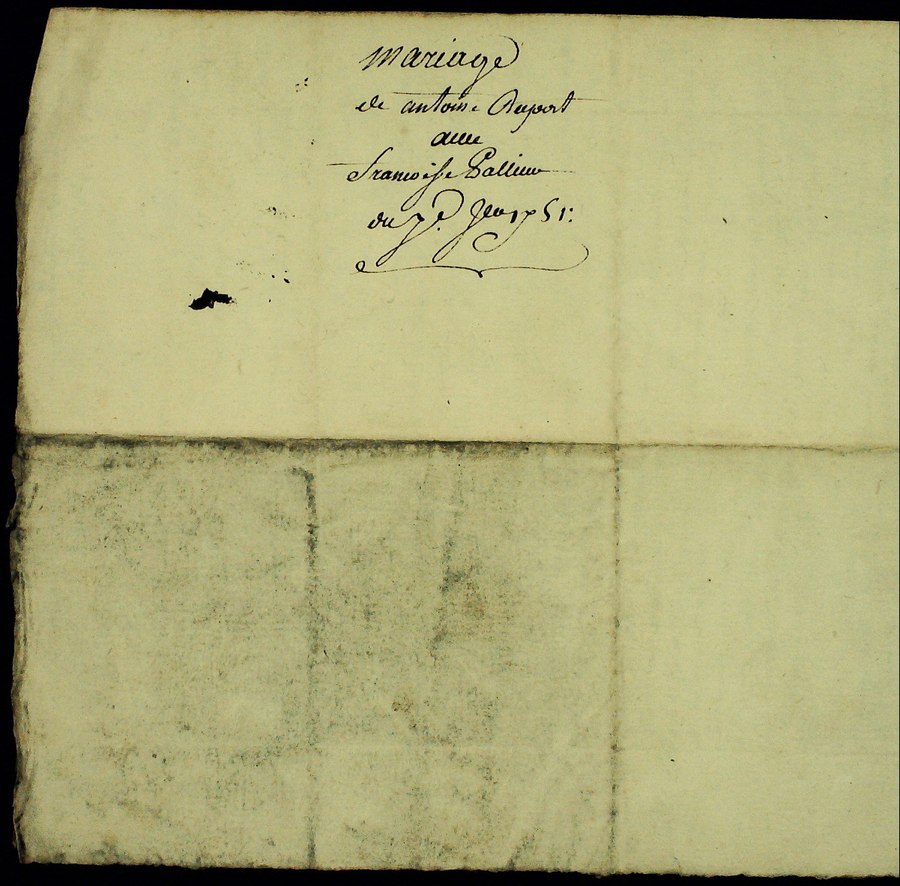 mariage
de antoine Duport
avec
francoise
du 7e. Jer 1751: